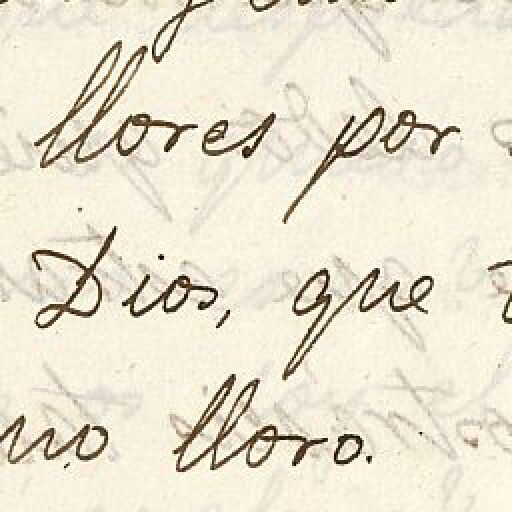 llores por
Dios, que
no lloro.